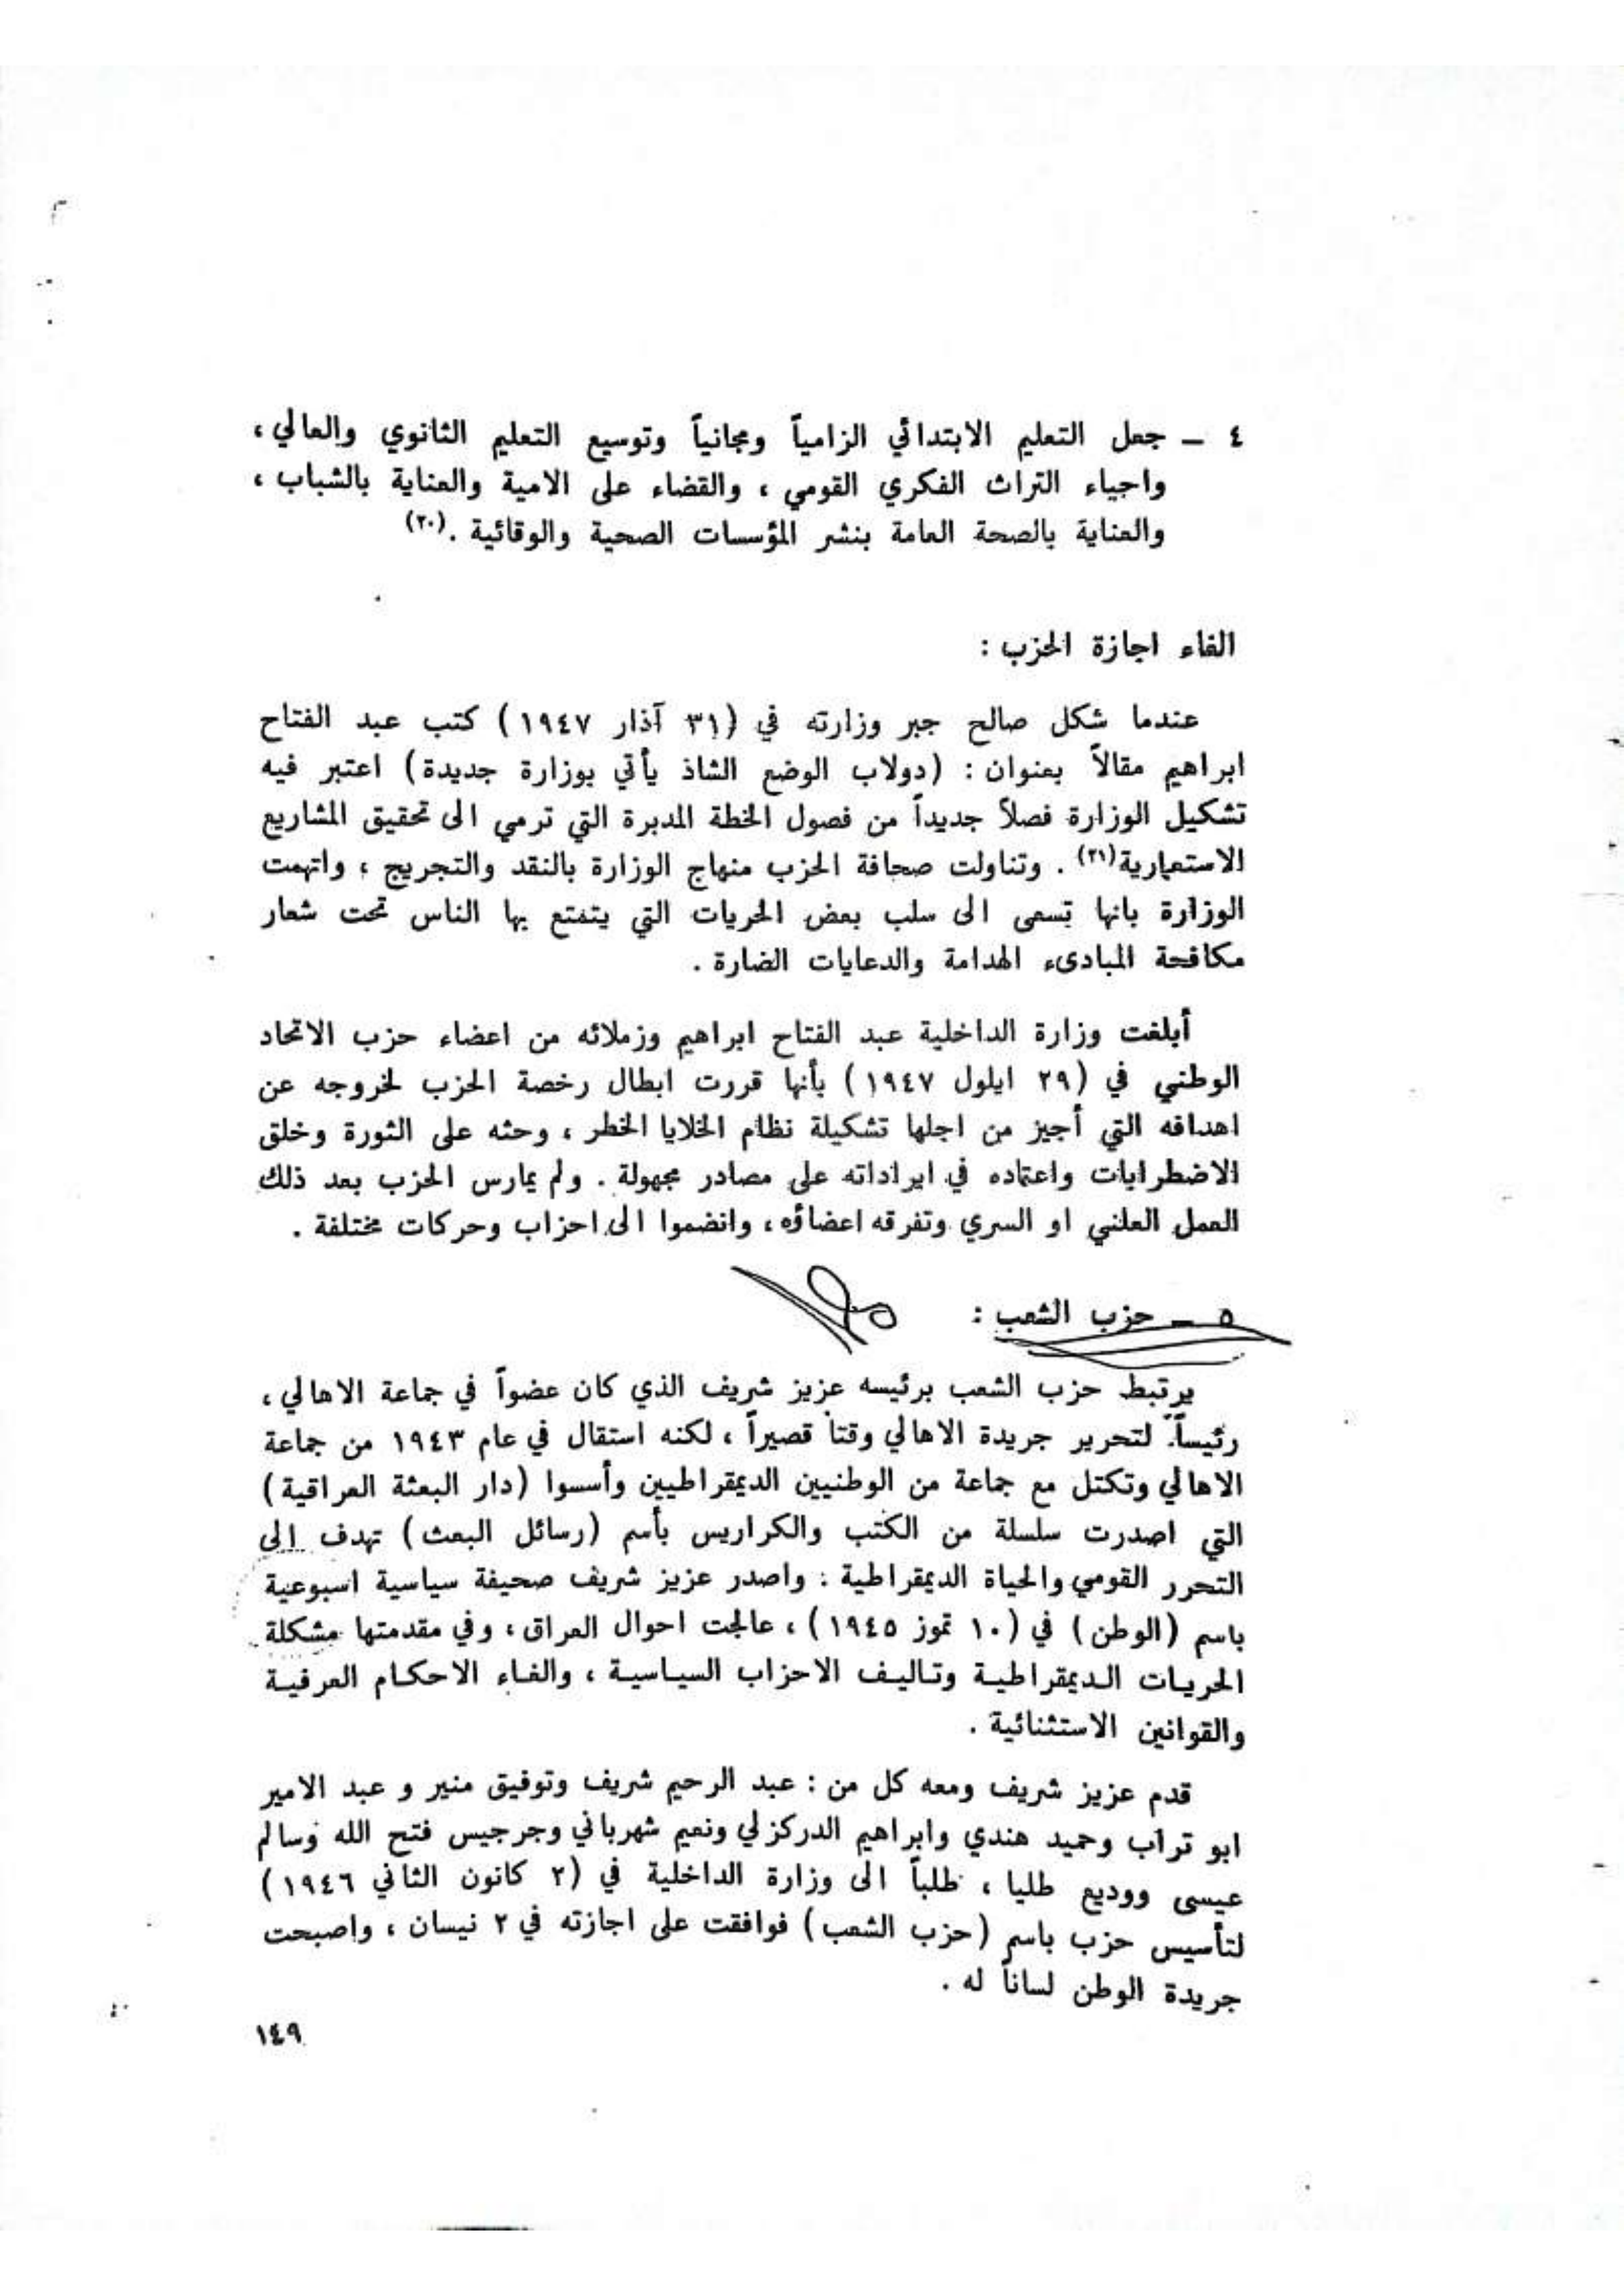 ٤ ــ جعل التعليم الابتدائي الزامياً ومجانياً وتوسيع التعليم الثانوي والعالي ،
واحياء التراث الفكري القومي ، والقضاء على الامية والعناية بالشباب ،
والعناية بالصحة العامة بنشر المؤسسات الصحية والوقائية .(٣٠)
الغاء اجازة الحزب :
عندما شكل صالح جبر وزارته في (٣١ آذار ١٩٤٧) كتب عبد الفتاح
ابراهيم مقالاً بعنوان : (دولاب الوضع الشاذ يأتي بوزارة جديدة) اعتبر فيه
تشكيل الوزارة فصلاً جديداً من فصول الخطة المدبرة التي ترمي الى تحقيق المشاريع
الاستعمارية(٣١) . وتناولت صحافة الحزب منهاج الوزارة بالنقد والتجريح ، واتهمت
الوزارة بانها تسعى الى سلب بعض الحريات التي يتمتع بها الناس تحت شعار
مكافحة المبادىء الهدامة والدعايات الضارة .
أبلغت وزارة الداخلية عبد الفتاح ابراهيم وزملائه من اعضاء حزب الاتحاد
الوطني في (٢٩ ايلول ١٩٤٧) بأنها قررت ابطال رخصة الحزب لخروجه عن
اهدافه التي أجيز من اجلها تشكيلة نظام الخلايا الخطر ، وحثه على الثورة وخلق
الاضطرابات واعتماده في ايراداته على مصادر مجهولة . ولم يمارس الحزب بعد ذلك
العمل العلني او السري وتفرقه اعضاؤه ، وانضموا الى احزاب وحركات مختلفة .
٥ ــ حزب الشعب :
يرتبط حزب الشعب برئيسه عزيز شريف الذي كان عضواً في جماعة الاهالي ،
رئيساً لتحرير جريدة الاهالي وقتاً قصيراً ، لكنه استقال في عام ١٩٤٣ من جماعة
الاهالي وتكتل مع جماعة من الوطنيين الديمقراطيين وأسسوا (دار البعثة العراقية)
التي اصدرت سلسلة من الكتب والكراريس بأسم (رسائل البعث) تهدف الى
التحرر القومي والحياة الديمقراطية : واصدر عزيز شريف صحيفة سياسية اسبوعية
باسم (الوطن) في (١٠ تموز ١٩٤٥) ، عالجت احوال العراق ، وفي مقدمتها مشكلة
الحريات الديمقراطية وتاليف الاحزاب السياسية ، والغاء الاحكام العرفية
والقوانين الاستثنائية .
قدم عزيز شريف ومعه كل من : عبد الرحيم شريف وتوفيق منير و عبد الامير
ابو تراب وحميد هندي وابراهيم الدركزلي ونعيم شهرباني وجرجيس فتح الله وسالم
عيسى ووديع طليا ، طلباً الى وزارة الداخلية في (٢ كانون الثاني ١٩٤٦)
لتأسيس حزب باسم (حزب الشعب) فوافقت على اجازته في ٢ نيسان ، واصبحت
جريدة الوطن لساناً له .
١٤٩